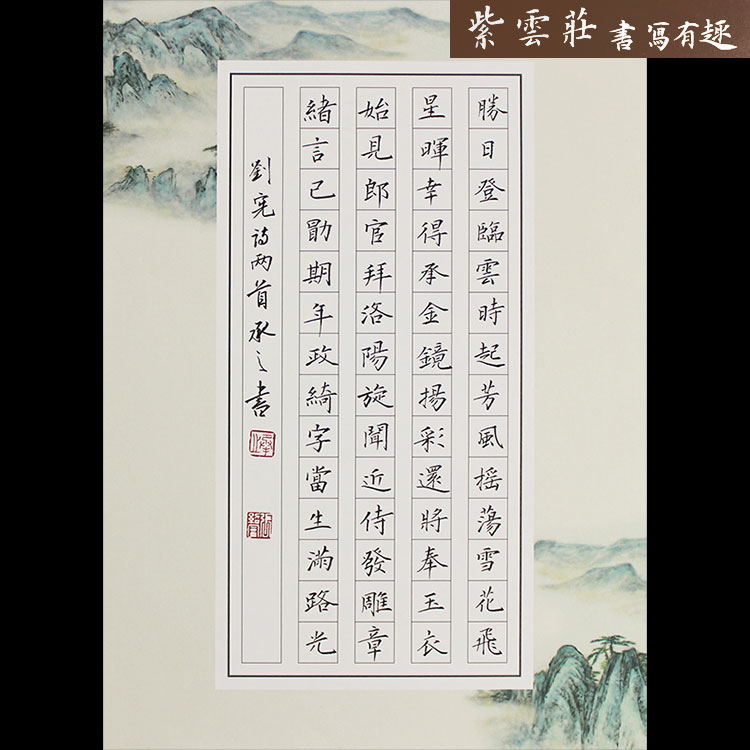 紫雲莊 書寫有趣
勝日登臨雲時起芳風搖蕩雪花飛
星暉幸得承金鏡揚彩還將奉玉衣
始見郎官拜洛陽旋聞近侍發雕章
緒言已勖期年政綺字當生滿路光
劉宪诗两首承之書